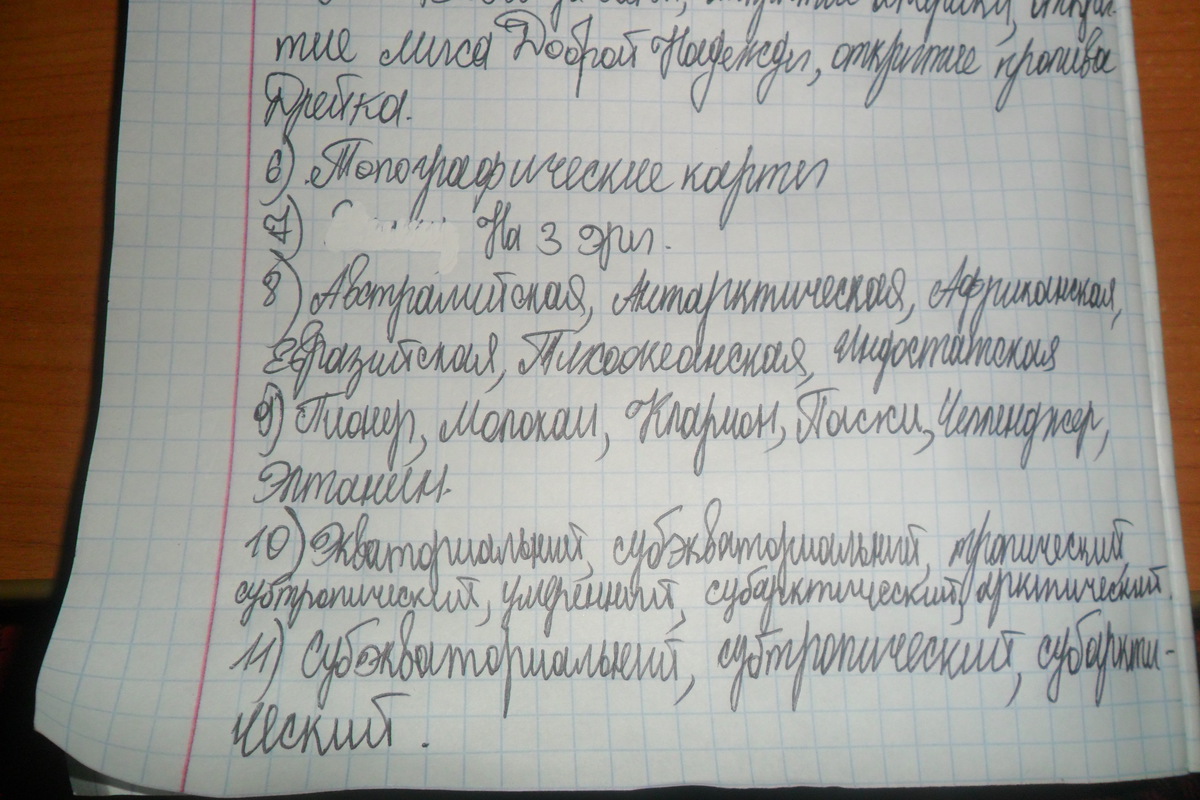 тие мыса Доброй Надежды, открытие пролива
Дрейка.
6) Топографические карты
7) На 3 эры.
8) Австралийская, Антарктическая, Африканская,
Евразийская, Тихоокеанская, Индостатская
9) Пионер, Молокаи, Кларион, Пасхи, Челленджер,
Элтанин.
10) Экваториальный, субэкваториальный, тропический,
субтропический, умеренный, субарктический, арктический.
11) Субэкваториальний, субтропический, субаркти-
ческий.